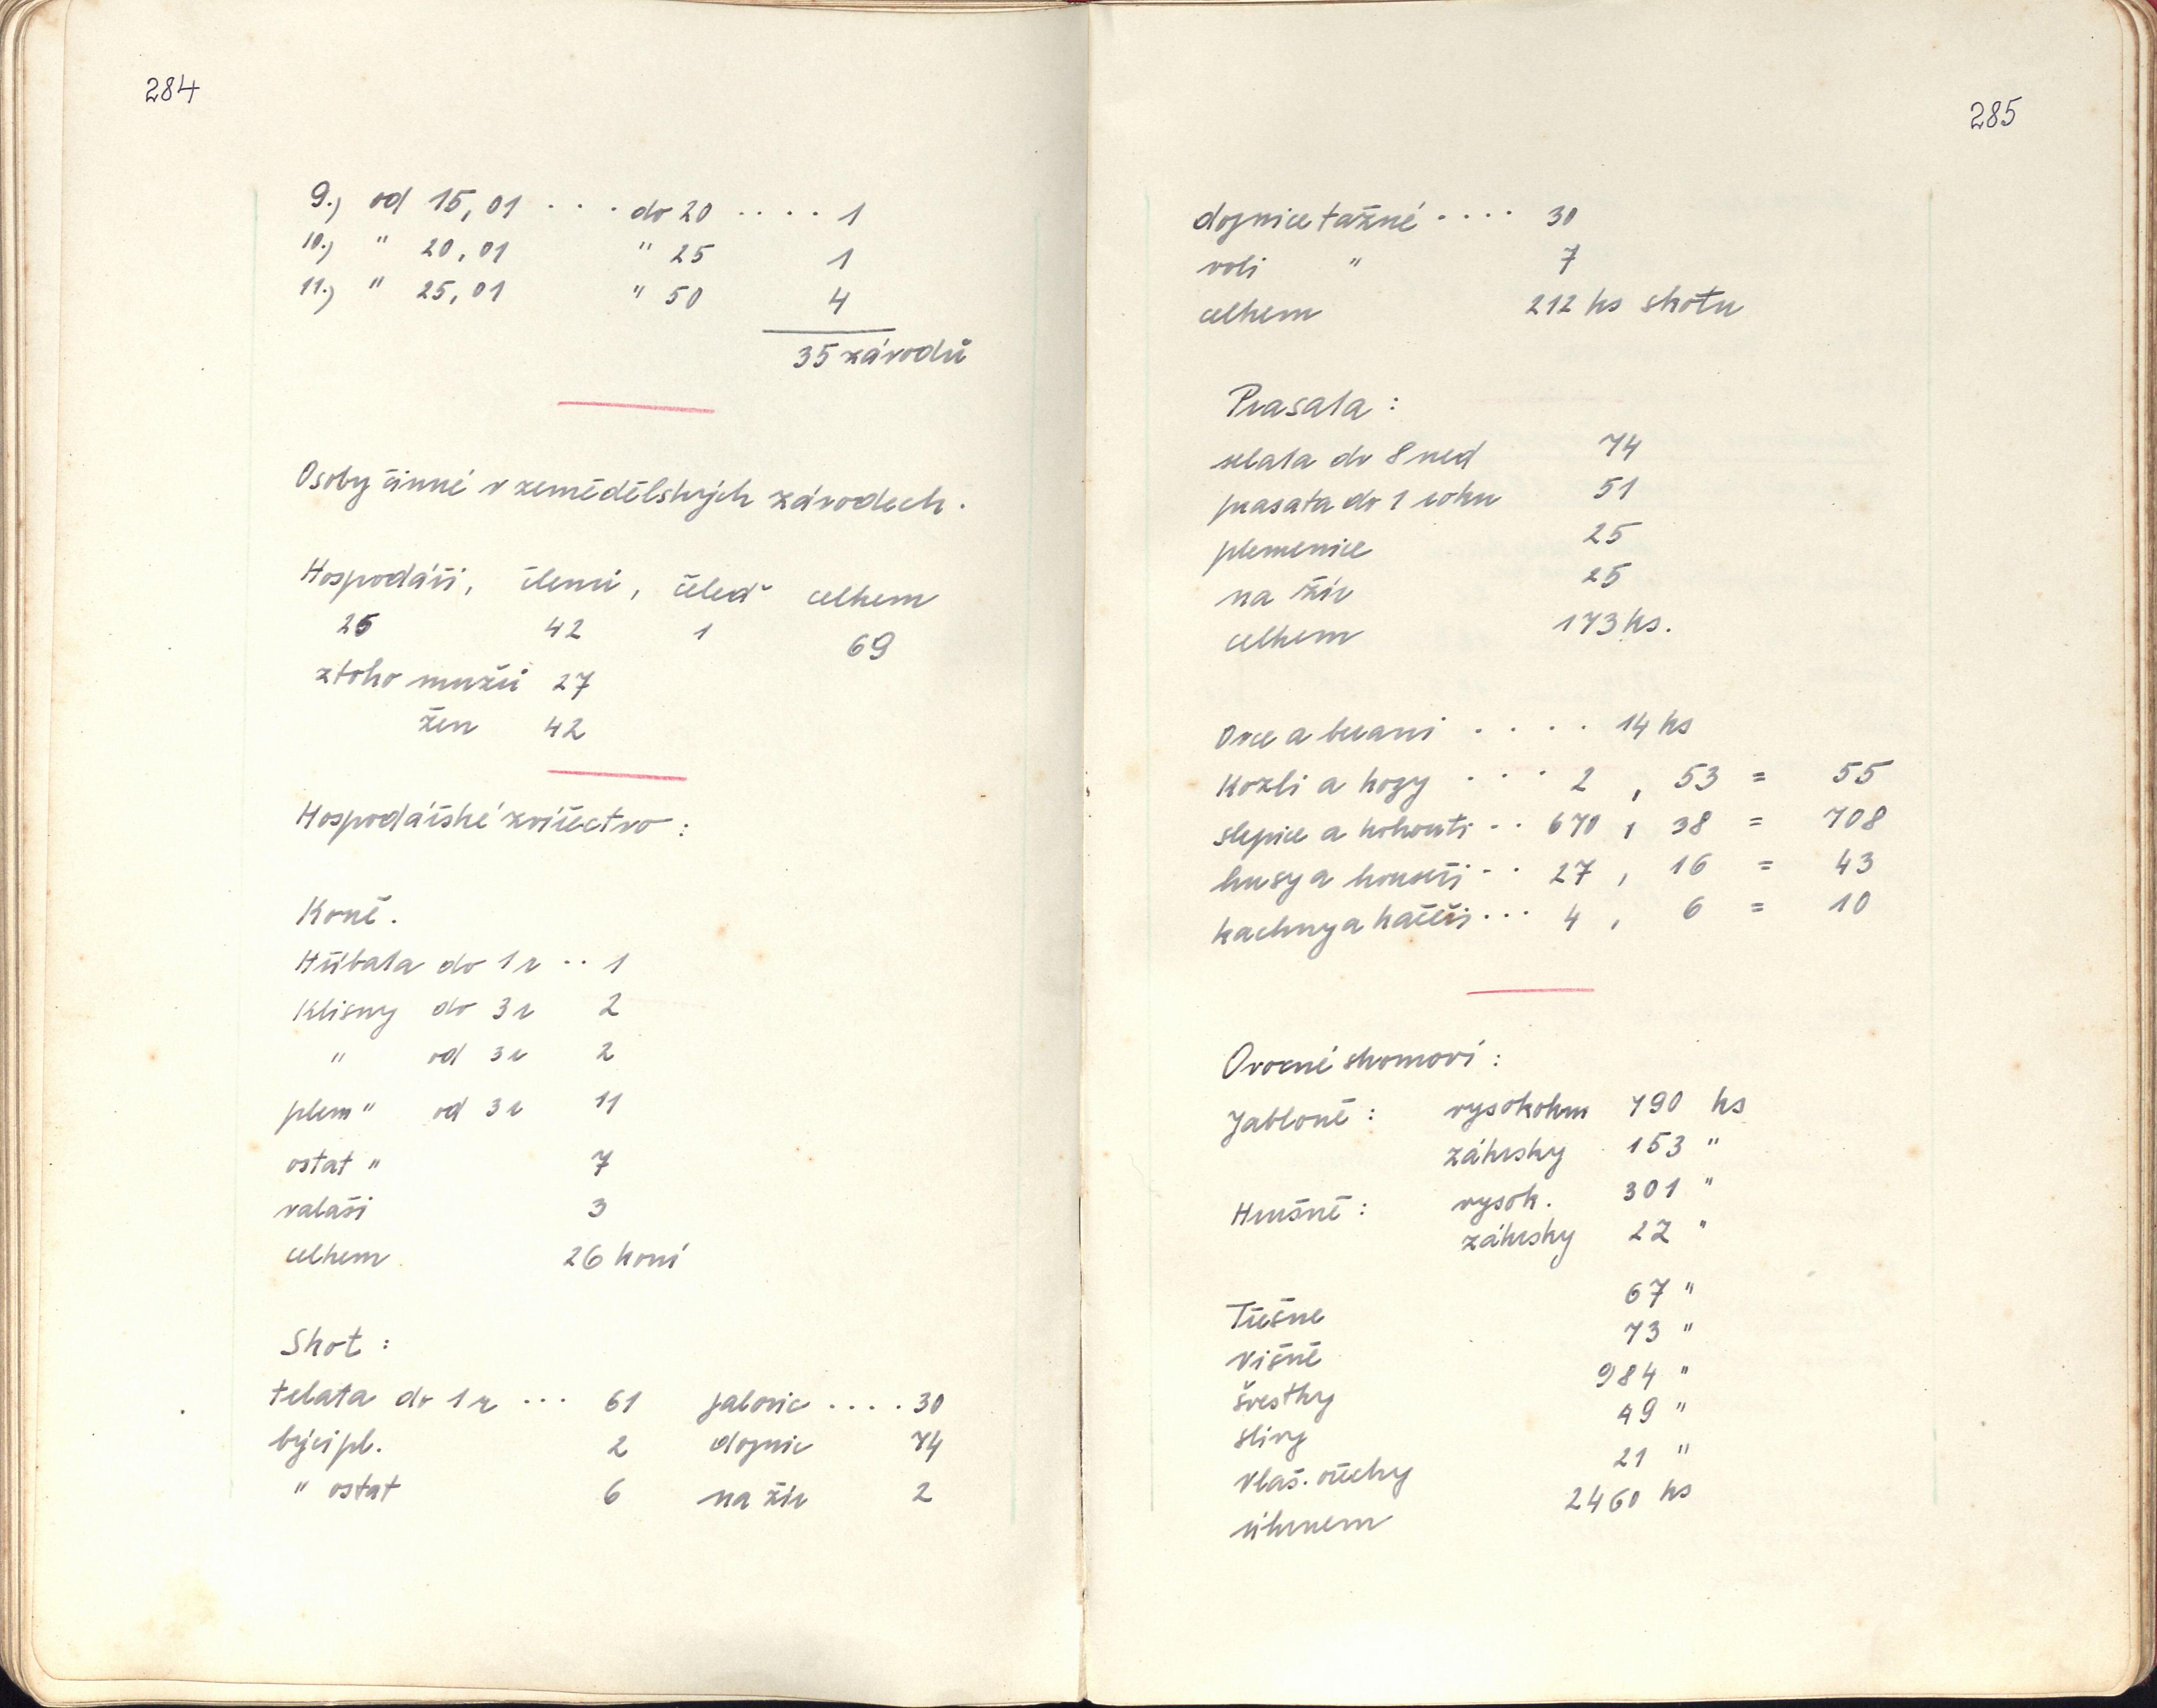 284
9.) od 15,01 . . . do 20 . . . . 1
10.) " 20,01 " 25 1
11.) " 25,01 " 50 4
35 závodů
Osoby činné v zemědělských závodech.
Hospodáři, členů, čeleď celkem
26 42 1 69
z toho mužů 27
žen 42
Hospodářské zvířectvo:
Koně.
Hříbata do 1 r .. 1
Klisny do 3 r 2
" od 3 r 2
plem " od 3 r 11
ostat " 7
valaši 3
celkem 26 koní
Skot:
telata do 1 r ... 61 jalovic .... 30
býci pl. 2 dojnic 74
" ostat 6 na žír 2
285
dojnice tažné .... 30
voli " 7
celkem 212 ks skotu
Prasata:
selata do 8 ned 74
prasata do 1 roku 51
plemenice 25
na žír 25
celkem 173 ks.
Ovce a berani . . . . 14 ks
Kozli a kozy . . . 2 , 53 = 55
slepice a kohouti .. 670 , 38 = 708
husy a houseři .. 27 , 16 = 43
kachny a kačeři ... 4 , 6 = 10
Ovocné stromoví:
Jabloně: vysokokm 790 ks
zákrsky 153 "
Hrušně: vysok. 301 "
zákrsky 22 "
Třešne 67 "
višně 73 "
švestky 984 "
slivy 49 "
vlaš. ořechy 21 "
úhrnem 2460 ks